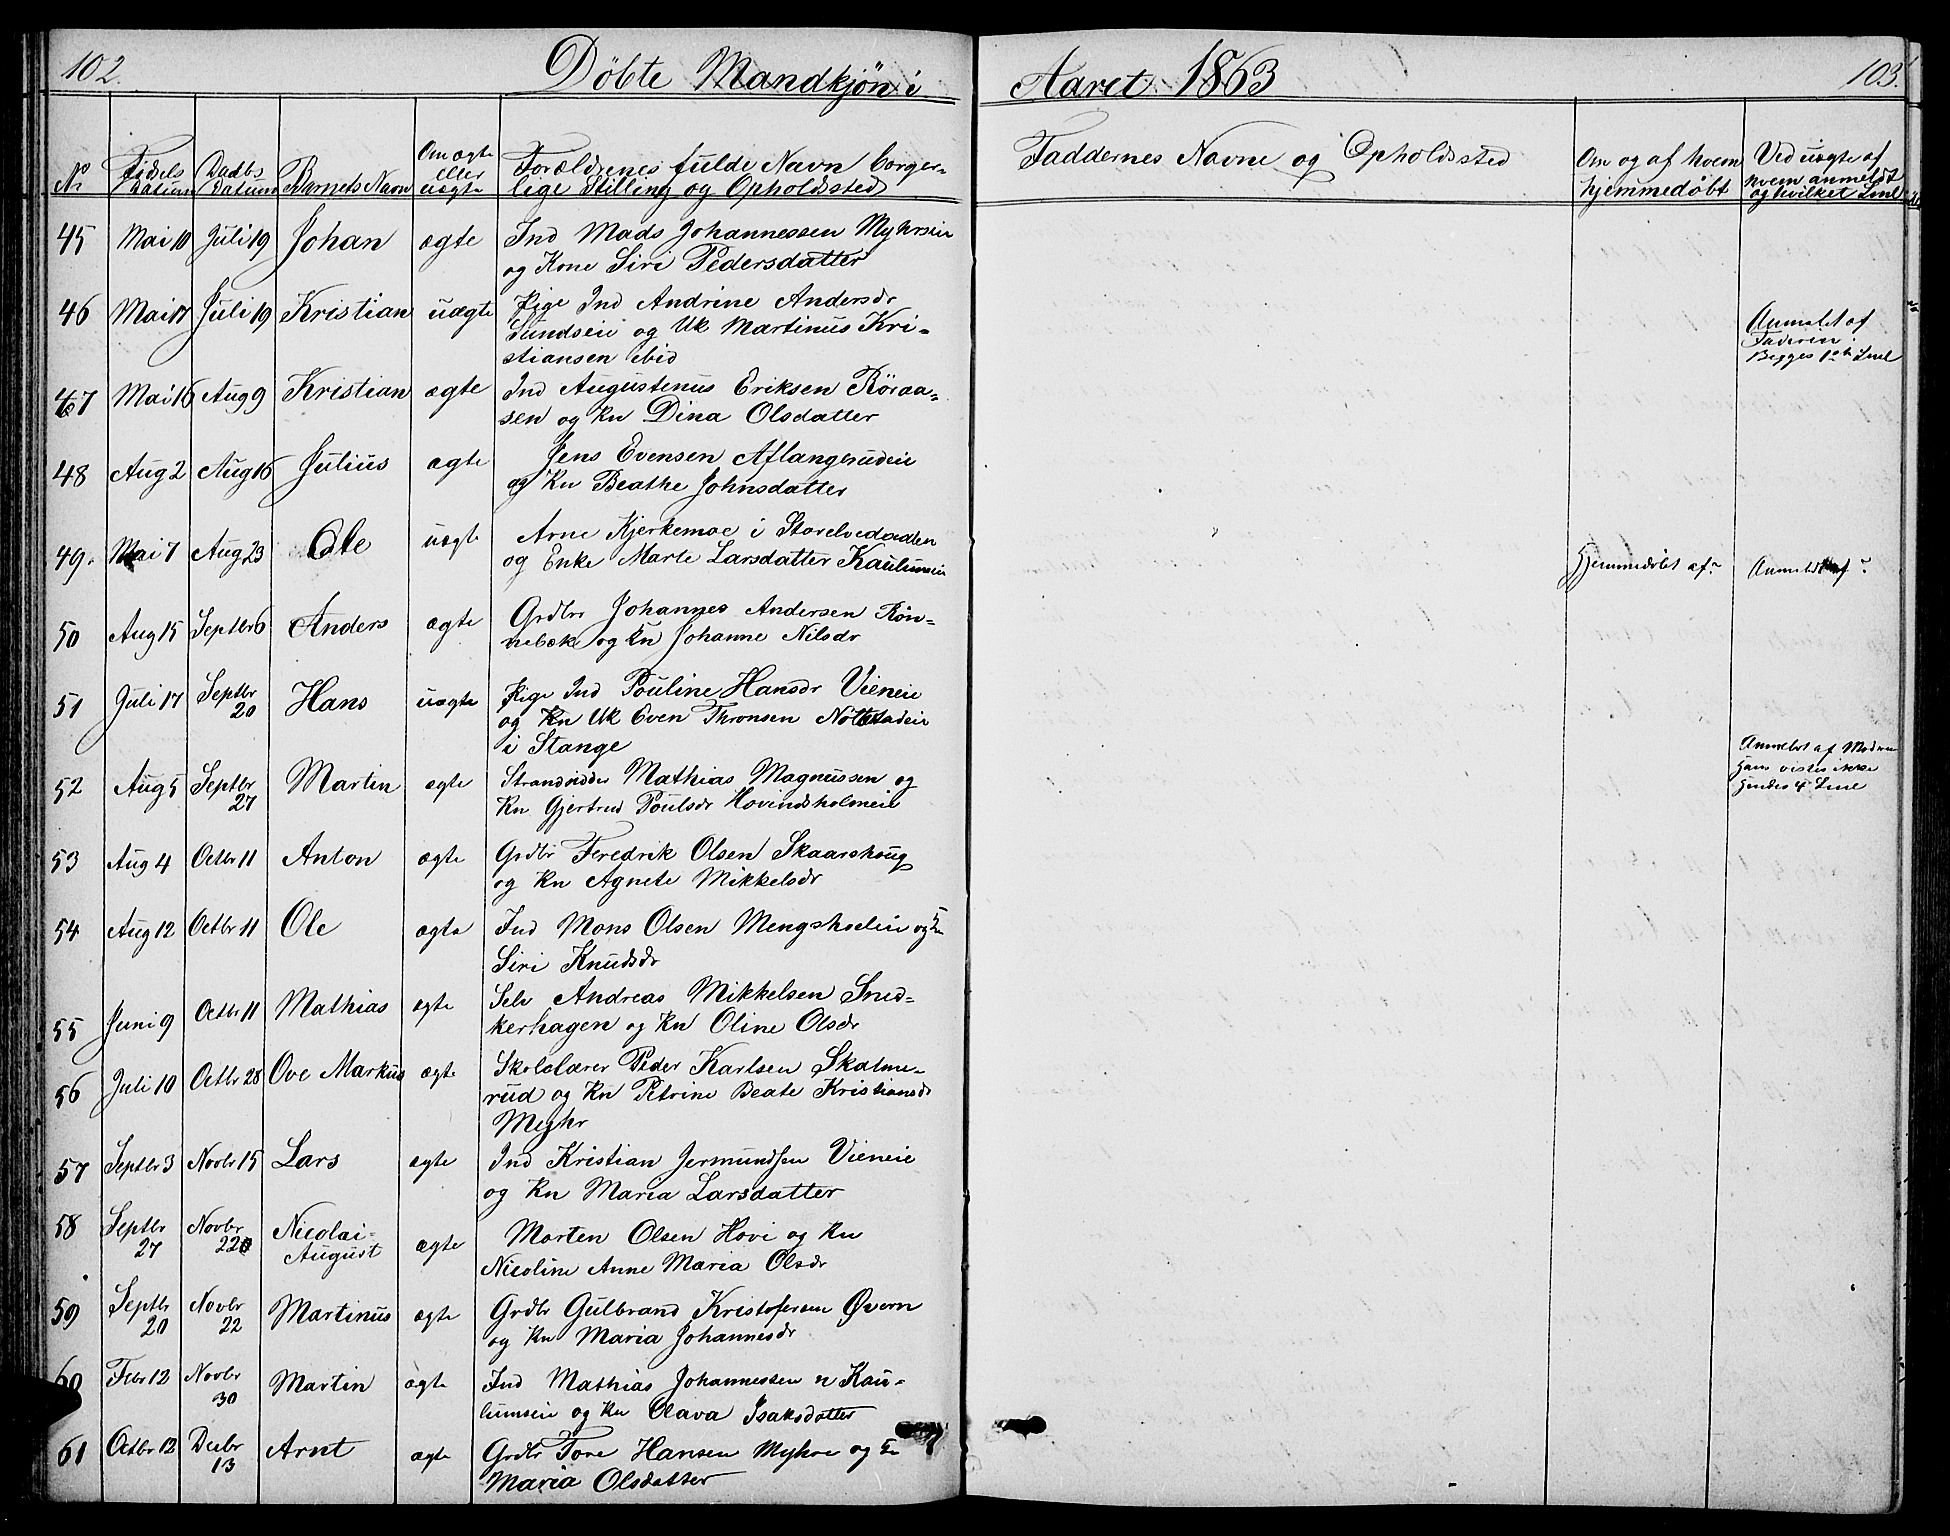 102.
Döbte Mandkjön i
Aaret 1863
103.
No
Födsels Datum
Daabs Datum
Barnets Navn
Om ægte eller uægte
Forældrenes fulde Navn borger-
lige Stilling og Opholdssted
Faddernes Navne og Opholdssted
Om og af hvem hjemmedöbt
Ved uægte af hvem anmeldt og hvilket Leiel
45 Mai 10 Juli 19 Johan ægte Ind Mads Johannessen Myhrseie
og Kone Siri Pedersdatter
46 Mai 17 Juli 19 Kristian uægte Pige Ind Andrine Andersdr
Sundseie og Uk Martinus Kri-
stiansen ibid
Anmeldt af
Faderen.
Begges 1ste Leiel
47 Mai 16 Aug 9 Kristian ægte Ind Augustenus Eriksen Röraa-
sen og Kn Dina Olsdatter
48 Aug 2 Aug 16 Julius ægte Jens Evensen Aflangerudeie
og Kn Beathe Johnsdatter
49. Mai 7 Aug 23 Ole uægte Arne Kjerkemoe i Storelvedalen
og Enke Marte Larsdatter Kaulumeie
Hjemmedöbt af?
Anmeldt af?
50 Aug 15 Septbr 6 Anders ægte Grdbr Johannes Andersen Rön-
nebæk og Kn Johanne Nilsdr
51 Juli 17 Septbr 20 Hans uægte Pige Ind Pouline Hansdr Vieneie
og Kn Uk Even Thronsen Nöttestadeie
i Stange
Anmeldt af Moderen
Hans vistes ikke
Hendes 4de Leiel
52 Aug 5 Septbr 27 Martin ægte Strandsidder Mathias Magnussen og
Kn Gjertrud Poulsdr Hovindsholmeie
53 Aug 4 Octbr 11 Anton ægte Grdbr Fredrik Olsen Skaarshoug
og Kn Agnete Mikkelsdr
54 Aug 12 Octbr 11 Ole ægte Ind Mons Olsen Mengshoelsei og Kn
Siri Knudsdr
55 Juni 9 Octbr 11 Mathias ægte Selv Andreas Mikkelsen Sned-
kerhagen og Kn Oline Olsdr
56 Juli 10 Octbr 28 Ove Markus ægte Skolelærer Peder Karlsen Skatme-
rud og Kn Petrine Beate Kristiansdr
Myhr
57 Septbr 3 Novbr 15 Lars ægte Ind Kristian Jermundsen Vieneie
og Kn Maria Larsdatter
58 Septbr 27 Novbr 22 Nicolai-
August ægte Morten Olsen Hovi og Kn
Nicoline Anne Maria Olsdr
59 Septbr 20 Novbr 22 Martinus ægte Grdbr Gulbrand Kristofersen Øvern
og Kn Maria Johannesdr
60 Febr 12 Novbr 30 Martin ægte Ind Mathias Johannessen n Kau-
lumseie og Kn Olava Isaksdatter
61 Octbr 12 Decbr 13 Arnt ægte Grdbr Tore Hansen Myhre og Kn
Maria Olsdatter